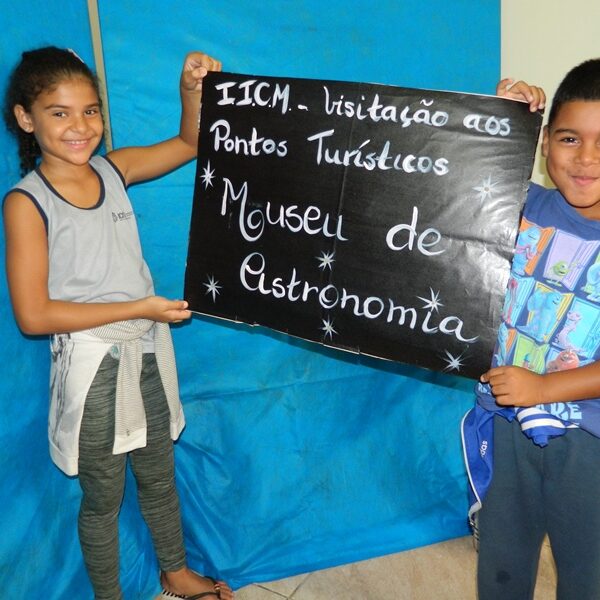 I.I.C.M. - Visitação aos
Pontos Turísticos
Museu de
Astronomia